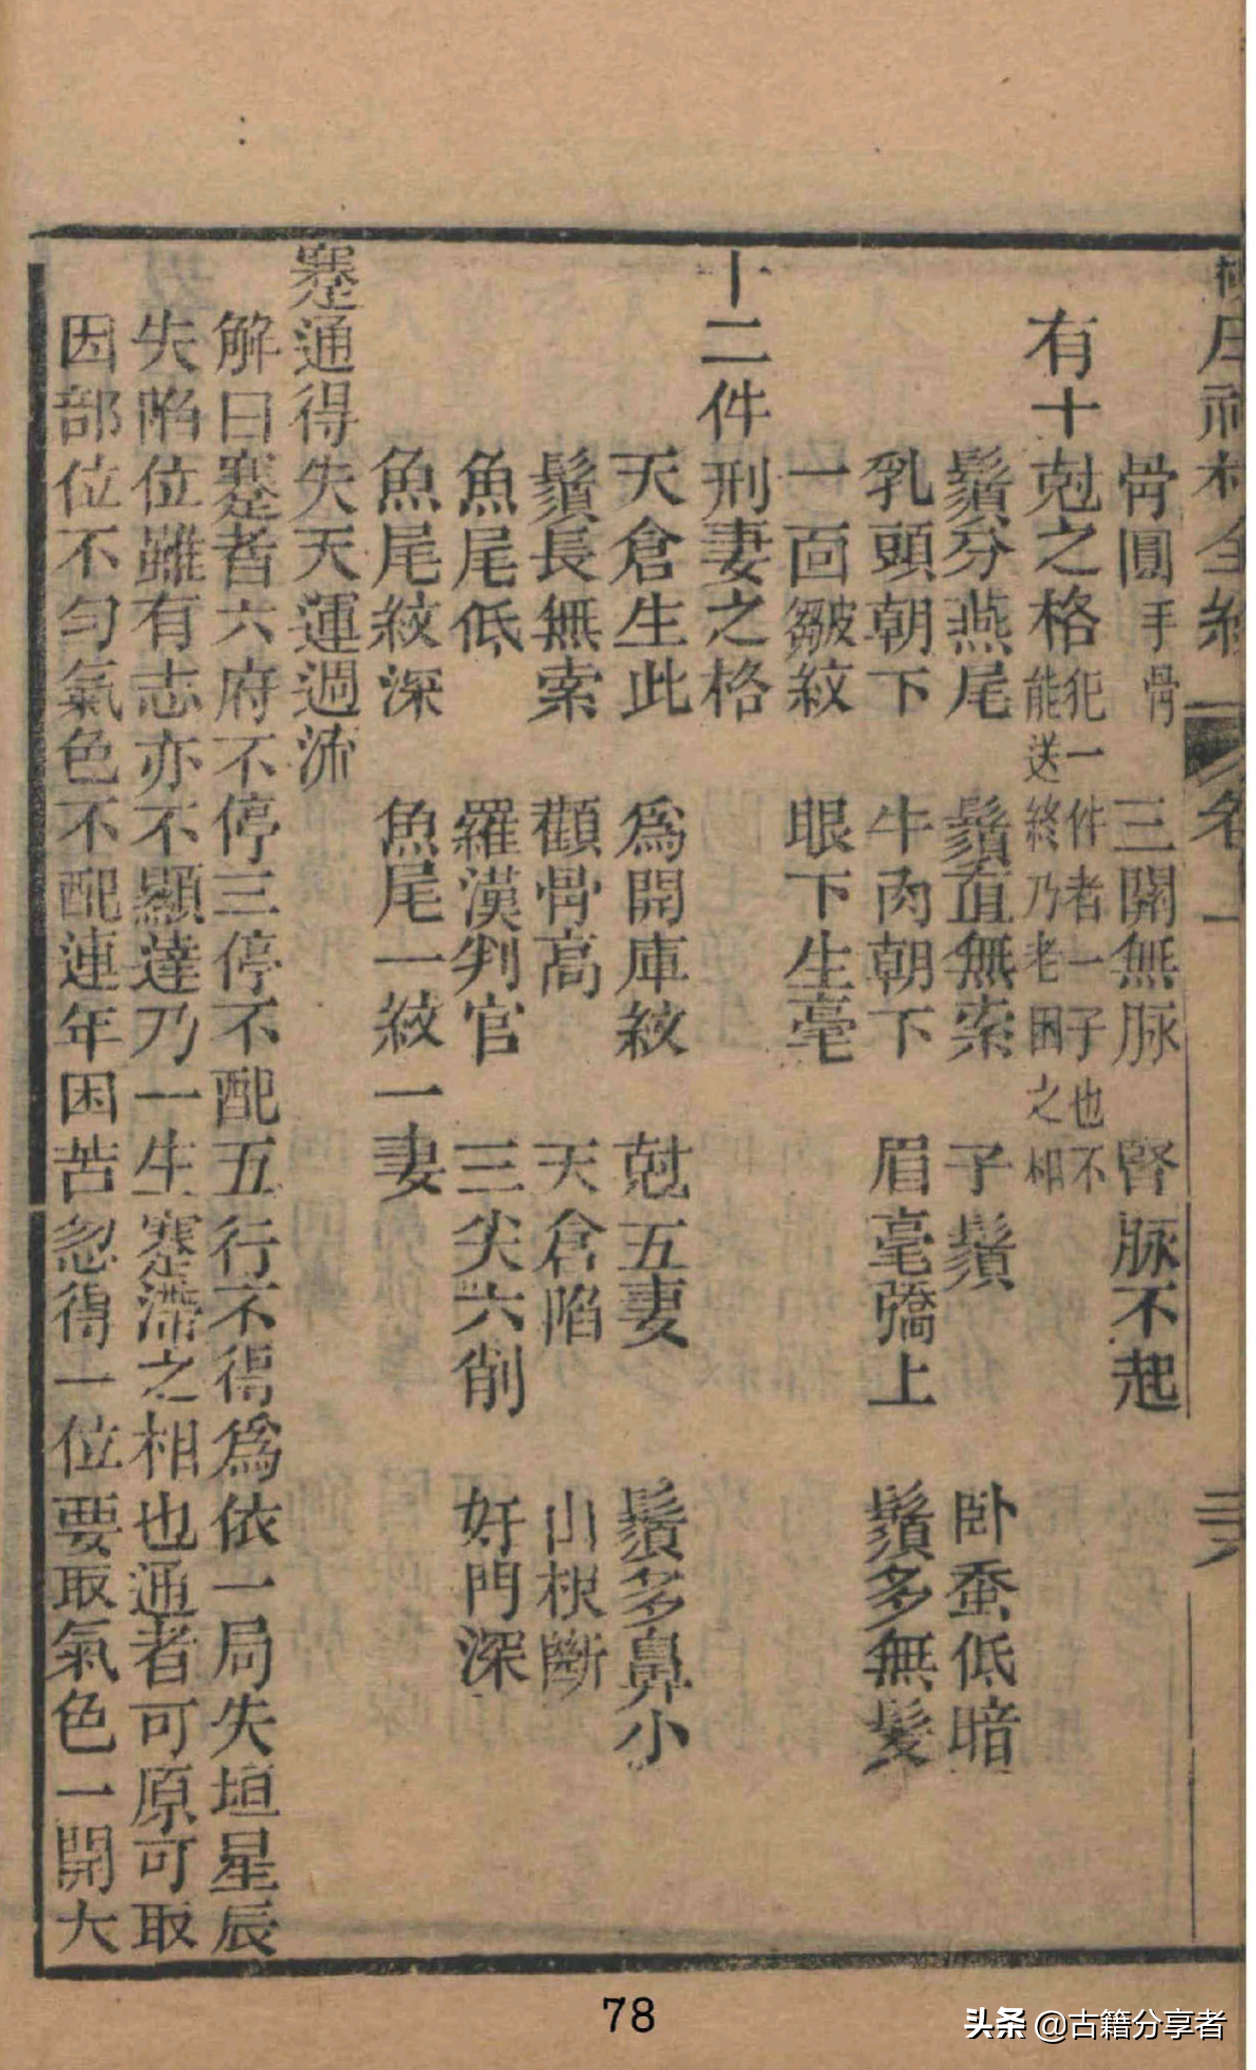 卷一
骨圓 手骨 三關無脉 腎脉不起
有十尅之格
犯一件者一子也不
能送終乃老困之相
鬚分燕尾 鬚直無索 子鬚 卧蚕低暗
乳頭朝下 牛肉朝下 眉毫上 鬚多無髮
一面皺紋 眼下生毫
十二件刑妻之格
天倉生此 爲開庫紋 尅五妻 鬚多鼻小
鬚長無索 顴骨高 天倉陷 山根斷
魚尾低 羅漢判官 三尖六削 奸門深
魚尾紋深 魚尾一紋一妻
蹇通得失天運週流
解曰蹇者六府不停三停不配五行不得爲依一局失垣星辰
失陷位雖有志亦不顯達乃一生蹇滯之相也通者可原可取
因部位不匀氣色不配連年困苦忽得一位要取氣色一開大
78
头条 @古籍分享者